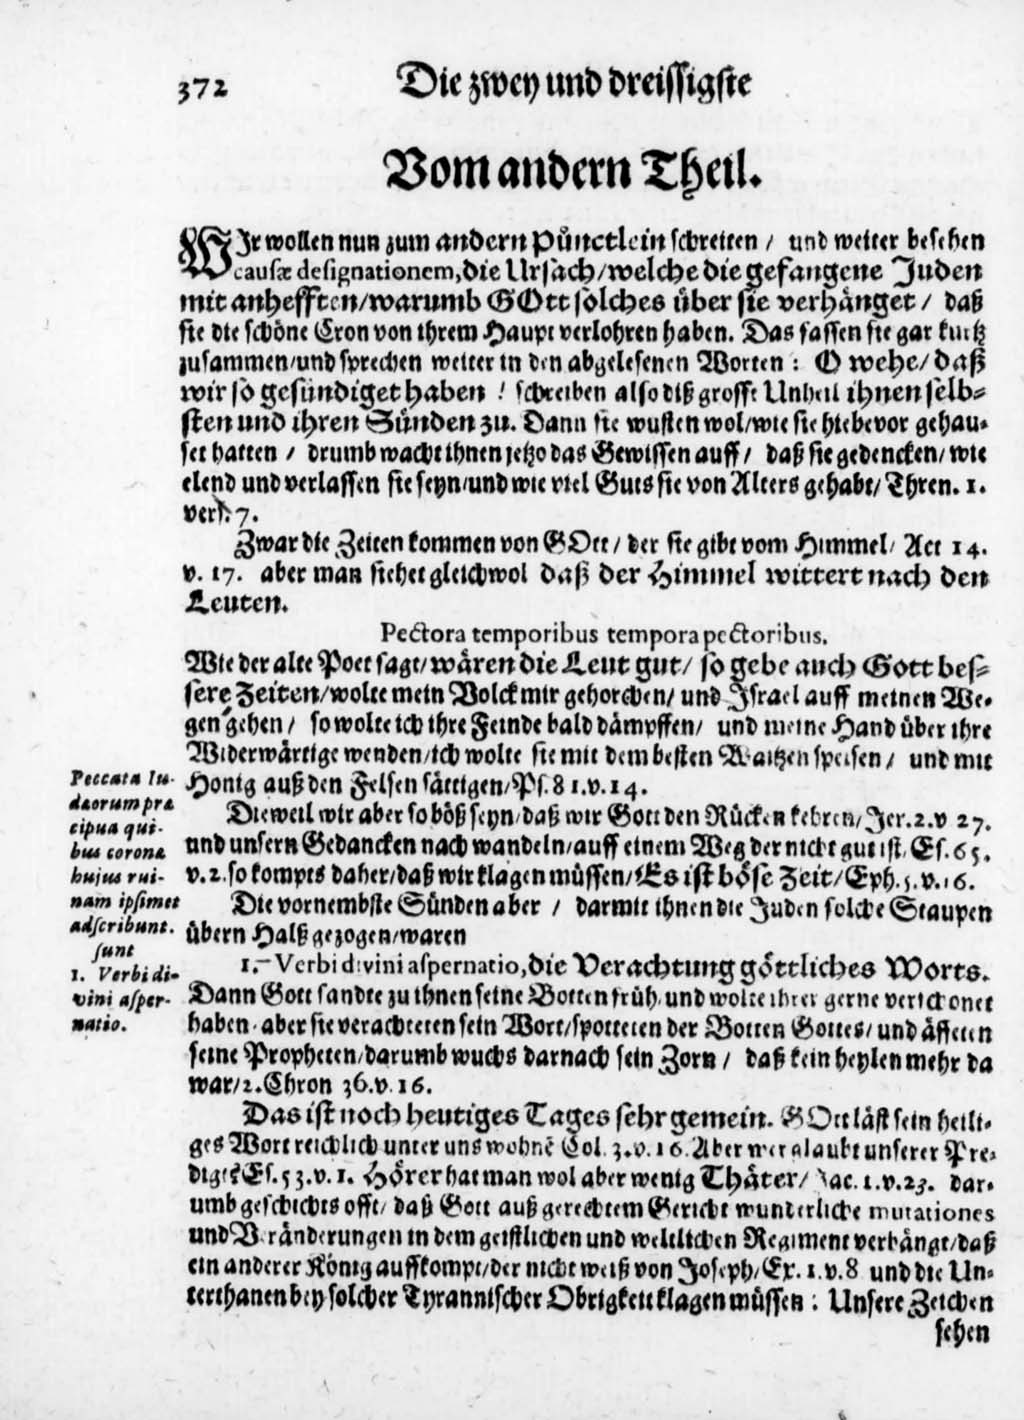 372 Die zwey und dreissigste
Vom andern Theil.
WIr wollen nun zum andern Pünctlein schreiten / und weiter besehen
causæ designationem, die Ursach/welche die gefangene Juden
mit anhefften/warumb GOtt solches über sie verhänget / daß
sie die schöne Cron von ihrem Haupt verlohren haben. Das fassen sie gar kurtz
zusammen/und sprechen weiter in den abgelesenen Worten : O wehe/ daß
wir so gesündiget haben ! schreiben also diß grosse Unheil ihnen selb-
sten und ihren Sünden zu. Dann sie wusten wol/wie sie hiebevor gehau-
set hatten / drumb wacht ihnen jetzo das Gewissen auff / daß sie gedencken/ wie
elend und verlassen sie seyn/und wie viel Guts sie von Alters gehabt/ Thren. 1.
vers. 7.
Zwar die Zeiten kommen von GOtt / der sie gibt vom Himmel/ Act 14.
v. 17. aber man siehet gleichwol daß der Himmel wittert nach den
Leuten.
Pectora temporibus tempora pectoribus.
Wie der alte Poet sagt/ wären die Leut gut/ so gebe auch Gott bes-
sere Zeiten/wolte mein Volck mir gehorchen/ und Israel auff meinen We-
gen gehen / so wolte ich ihre Feinde bald dämpffen/ und meine Hand über ihre
Widerwärtige wenden/ich wolte sie mit dem besten Waitzen speisen / und mit
Honig auß den Felsen sättigen/Ps. 81.v.14.
Dieweil wir aber so böß seyn/daß wir Gott den Rücken kehren/ Jer.2.v 27.
und unsern Gedancken nach wandeln/auff einem Weg der nicht gut ist, Es. 65.
v. 2. so kompts daher/daß wir klagen müssen/Es ist böse Zeit/Eph.5.v.16.
Die vornembste Sünden aber / darmit ihnen die Juden solche Staupen
übern Halß gezogen/waren
1. Verbi divini aspernatio, die Verachtung göttliches Worts.
Dann Gott sandte zu ihnen seine Botten früh/ und wolte ihrer gerne verschonet
haben, aber sie verachteten sein Wort/spotteten der Botten Gottes/ und äffeten
seine Propheten/darumb wuchs darnach sein Zorn / daß kein heylen mehr da
war/2.Chron 36.v.16.
Das ist noch heutiges Tages sehr gemein. GOtt läst sein heili-
ges Wort reichlich unter uns wohnē Col. 3.v.16. Aber wer glaubt unserer Pre-
digt? Es.53.v.1. Hörer hat man wol aber wenig Thäter/ Jac. 1.v.23. dar-
umb geschichts offt/ daß Gott auß gerechtem Gericht wunderliche mutationes
und Veränderungen in dem geistlichen und weltlichen Regiment verhängt/daß
ein anderer König auffkompt/der nicht weiß von Joseph/Ex. 1.v.8 und die Un-
terthanen bey solcher Tyrannischer Obrigkeit klagen müssen : Unsere Zeichen
sehen
Peccata Iu-
dæorum præ
cipua qui-
bus coronæ
hujus rui-
nam ipsimet
adscribunt.
sunt
1. Verbi di-
vini asper-
natio.